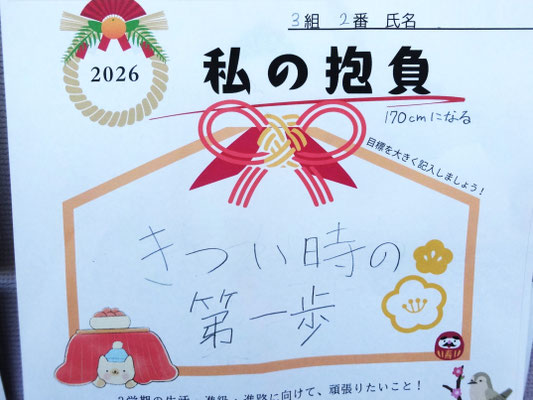 3組 2番 氏名
2026
私の抱負
170cmになる
目標を大きく記入しましょう!
きつい時の
第一歩
3学期の生活・進級・進路に向けて、頑張りたいこと!